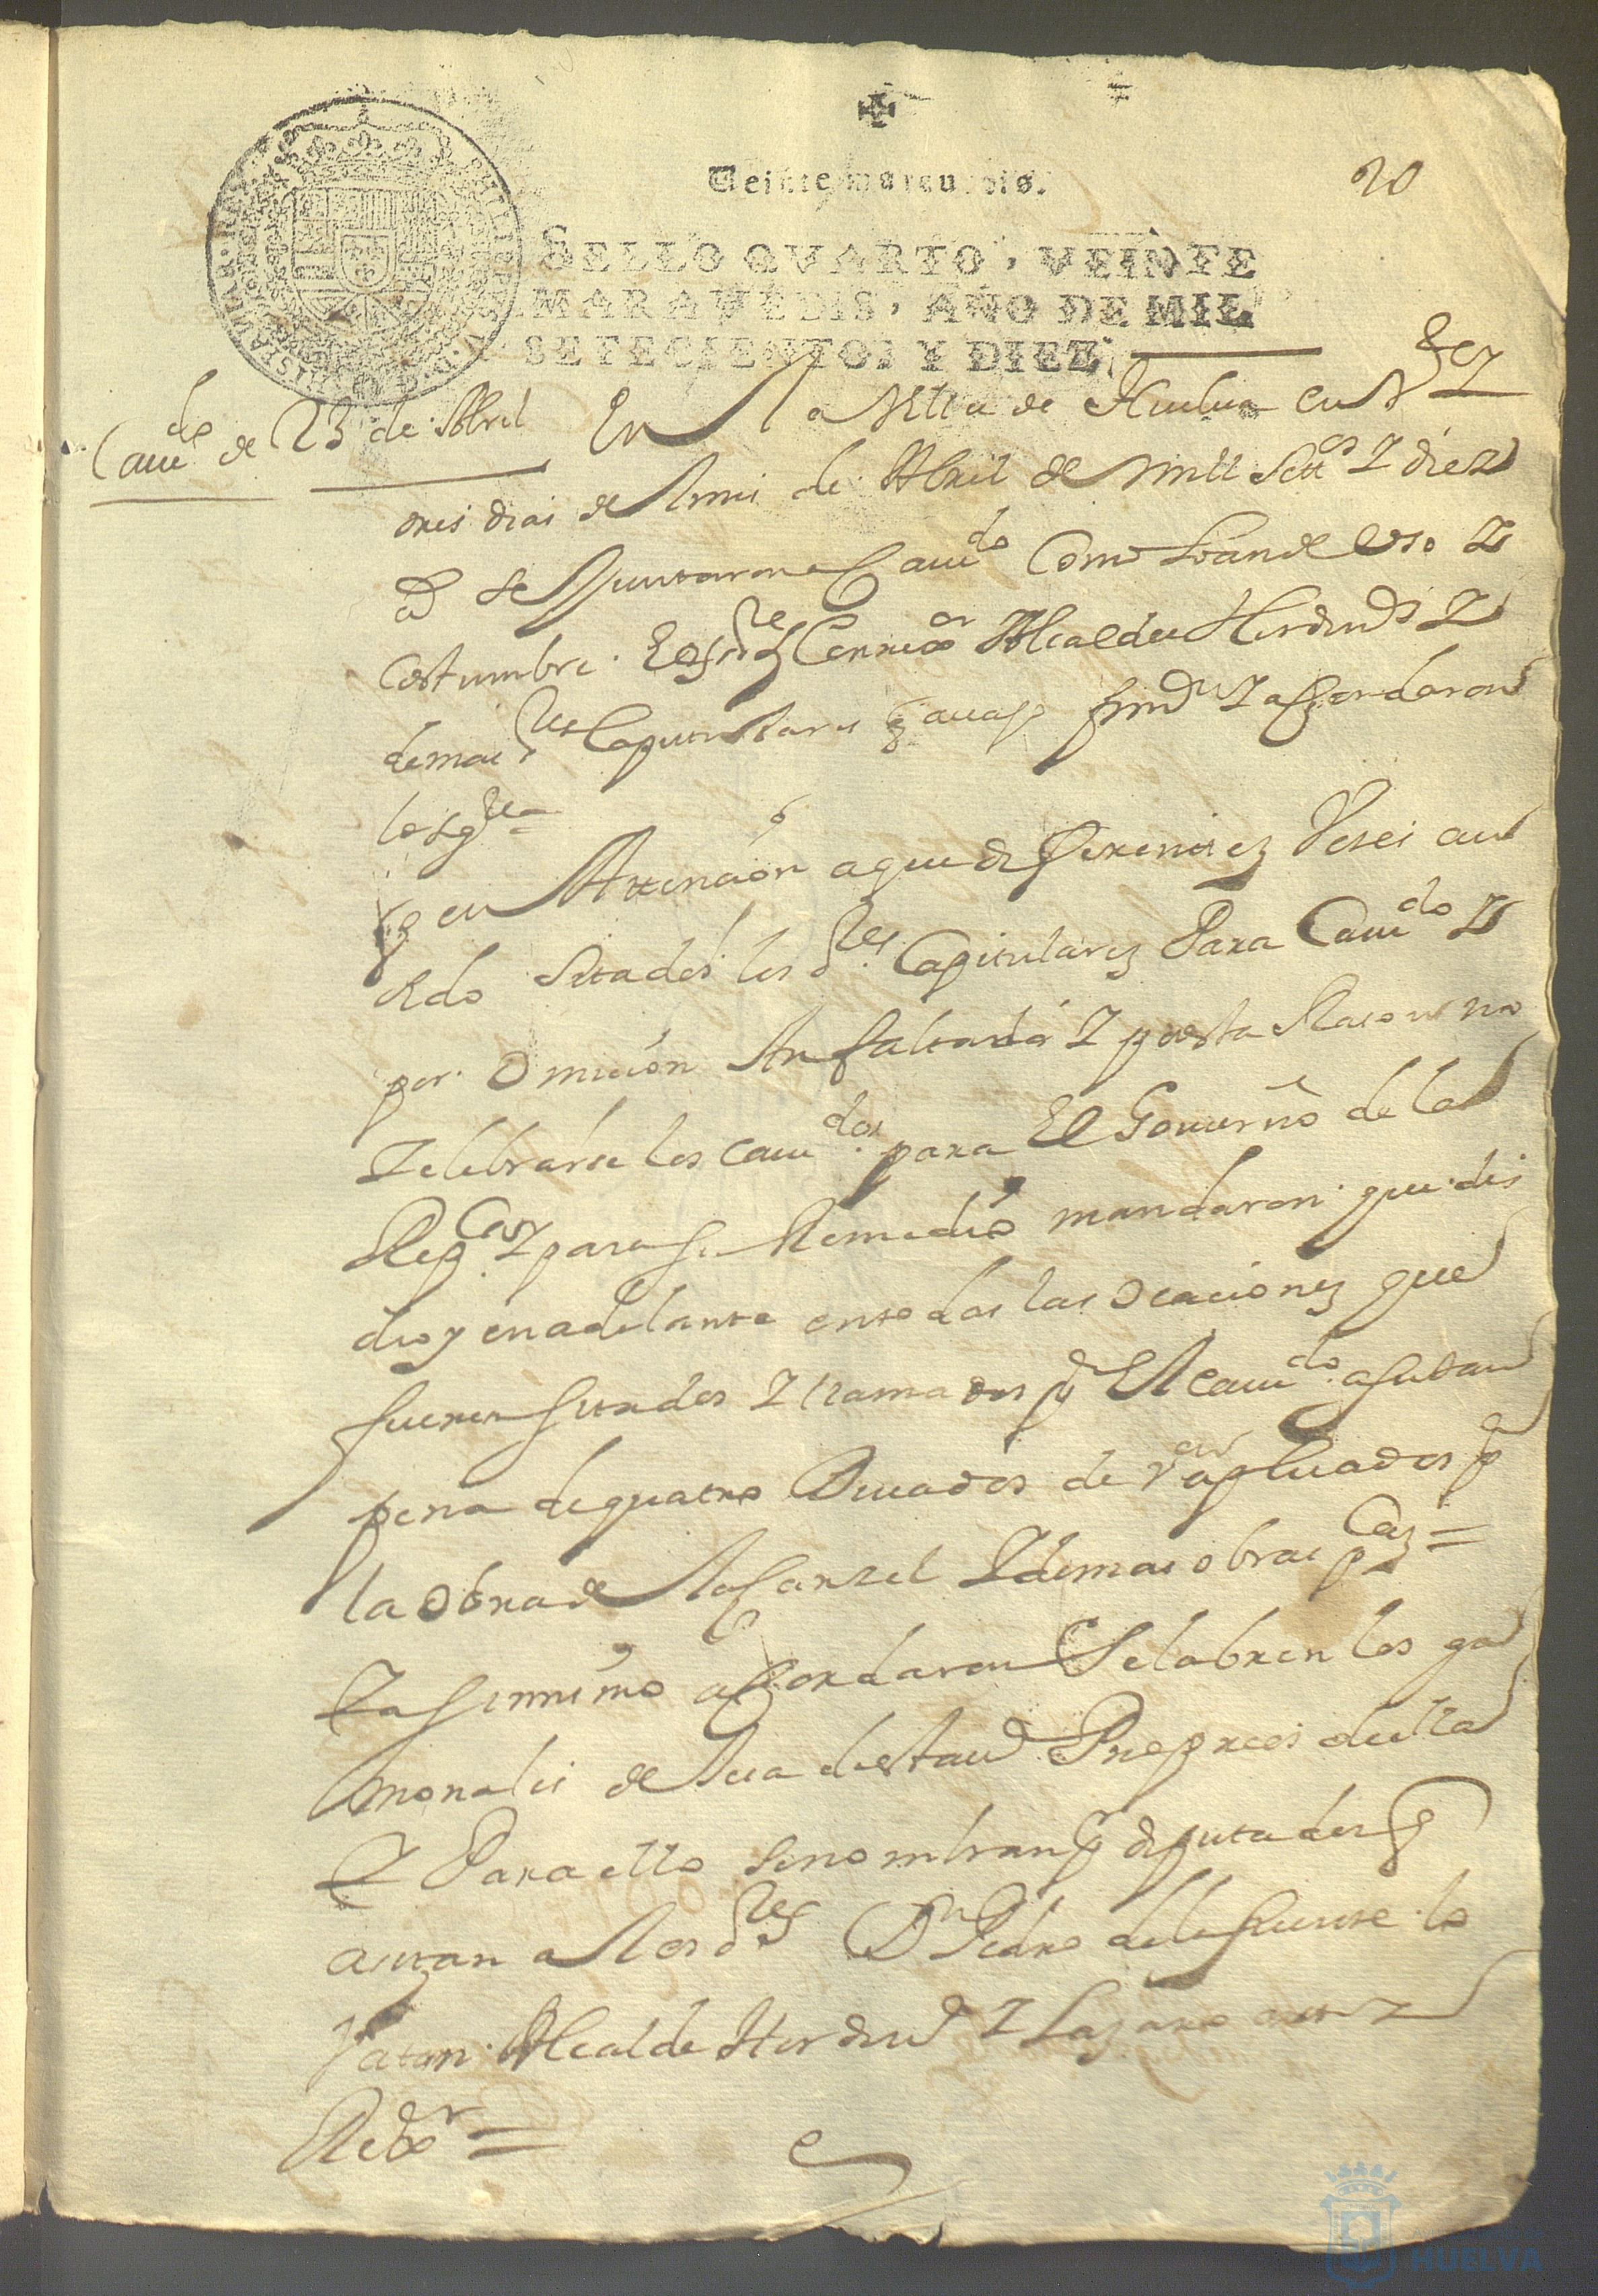 Veinte maravedis.
20
SELLO QVARTO, VEINTE
MARAVEDIS, AÑO DE MIL
SETECIENTOS Y DIEZ.
Cauᵈᵒ de 23 de Abril
En la Villa de Huelua en Vᵗᵉ y
tres dias del mes de Abril de mill Settᵒˢ y diez
aˢ se Juntaron a Cauᵈᵒ Como lo an de Uso y
Costumbre. Los sʳᵉˢ Correxᵒʳ Alcalde Hordinᵒ y
demas sʳᵉˢ Capitulares q auajo firmⁿ y acordaron
lo sigᵗᵉ
q en Attencion a que diferentes Veses an
sido Sitados los sʳᵉˢ Capitulares Para Cauᵈᵒ y
por Omicion An faltado y por esta Rason no
Zelebrarse los cauᵈᵒˢ para El Gouierno de la
Repᶜᵃ y para su Remedio mandaron que des
de oy en adelante en todas las Ocaciones que
fueren sitados y llamados pᵃ El Cauᵈᵒ asistan
pena de quatro Ducados de Vᵒⁿ aplicados pᵃ
la Obra de la Carzel y demas obras pᶜᵃˢ =
Y assimismo acordaron Se labren los
de esta Vᵃ Propios della
Y Para ello se nombran pʳ diputados q
asistan a los sʳᵉˢ Dⁿ Pedro de la fuente lo
Alcalde Hordinᵒ y Lazaro
Rexᵒʳ =
HUELVA